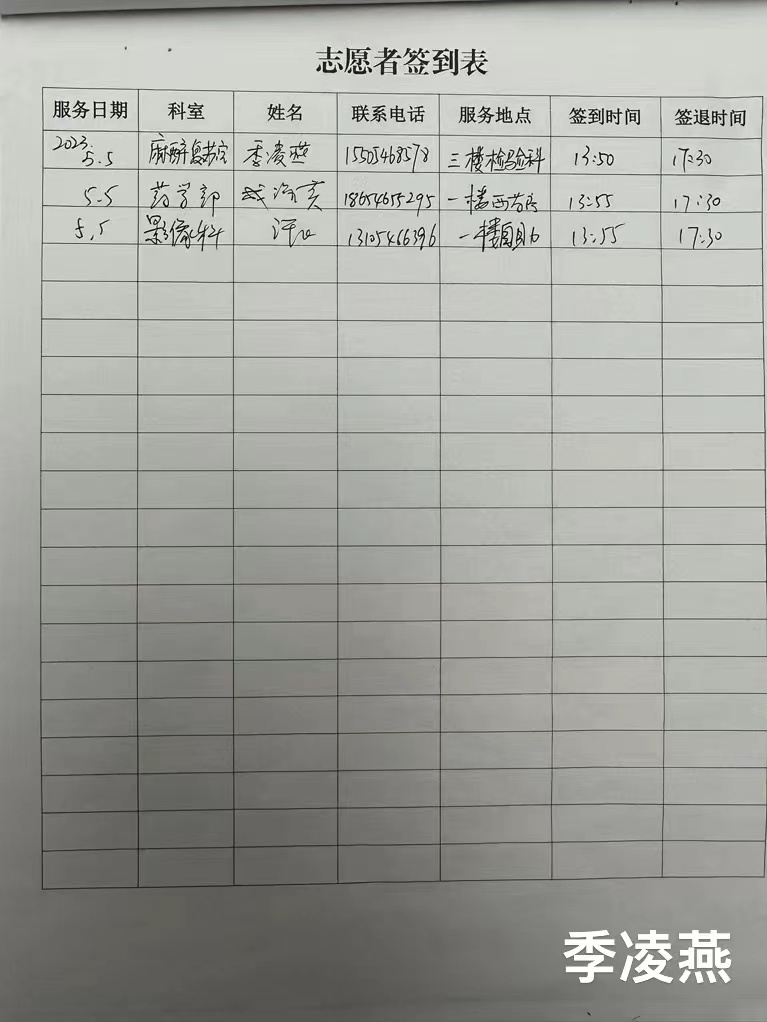 志愿者签到表
服务日期 科室 姓名 联系电话 服务地点 签到时间 签退时间
2023.5.5 麻醉复苏室 季凌燕 15505468578 三楼检验科 13:50 17:30
5.5 药学部 18654615295 一楼西药房 13:55 17:30
5.5 影像科 13105466396 一楼自助 13:55 17:30
季凌燕